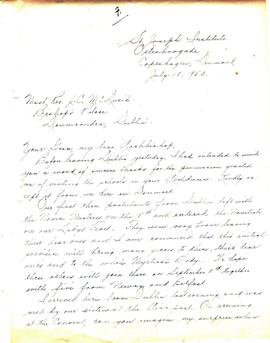 7.
St. Joseph Institute
Osterbrogade,
Copenhagen, Denmark
July 18. 1953.
Most Rev. J.C. McQuaid
Bishop's Palace
Drumcondra, Dublin.
Your Grace, my dear Archbishop,
Before leaving Dublin yesterday, I had intended to write
you a word of sincere thanks for the permission granted
me of visiting the schools in your Archdiocese. Kindly
accept of from me here in Denmark
Our first three postulants from Dublin left with
the Novice Mistress on the 8th and entered the Novitiate
on our Lady's Feast. They were very brave leaving
their dear ones and I am convinced that this initial
sacrifice will bring many graces to them, their dear
ones and to the whole Mystical Body. We hope
three others will join them on September 8th together
with five from Norway and Belfast.
I arrived here from Dublin last evening and was
met by our sisters at the Air port. On arriving
at the Convent, can you imagine my surprise when